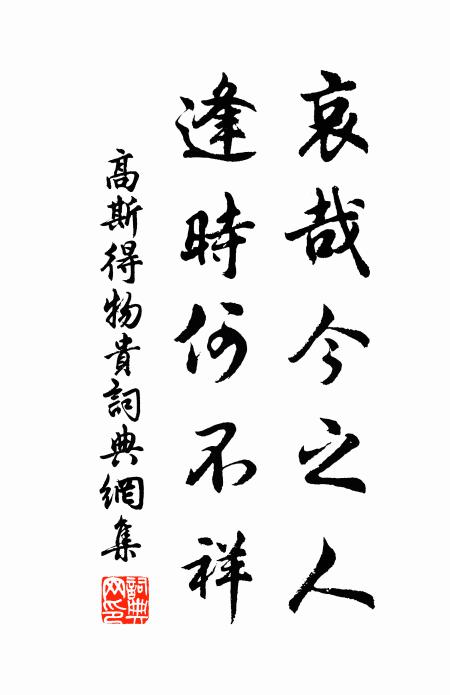 哀哉今之人
逢時何不祥
高斯得物貴詞典網集
詞典網印